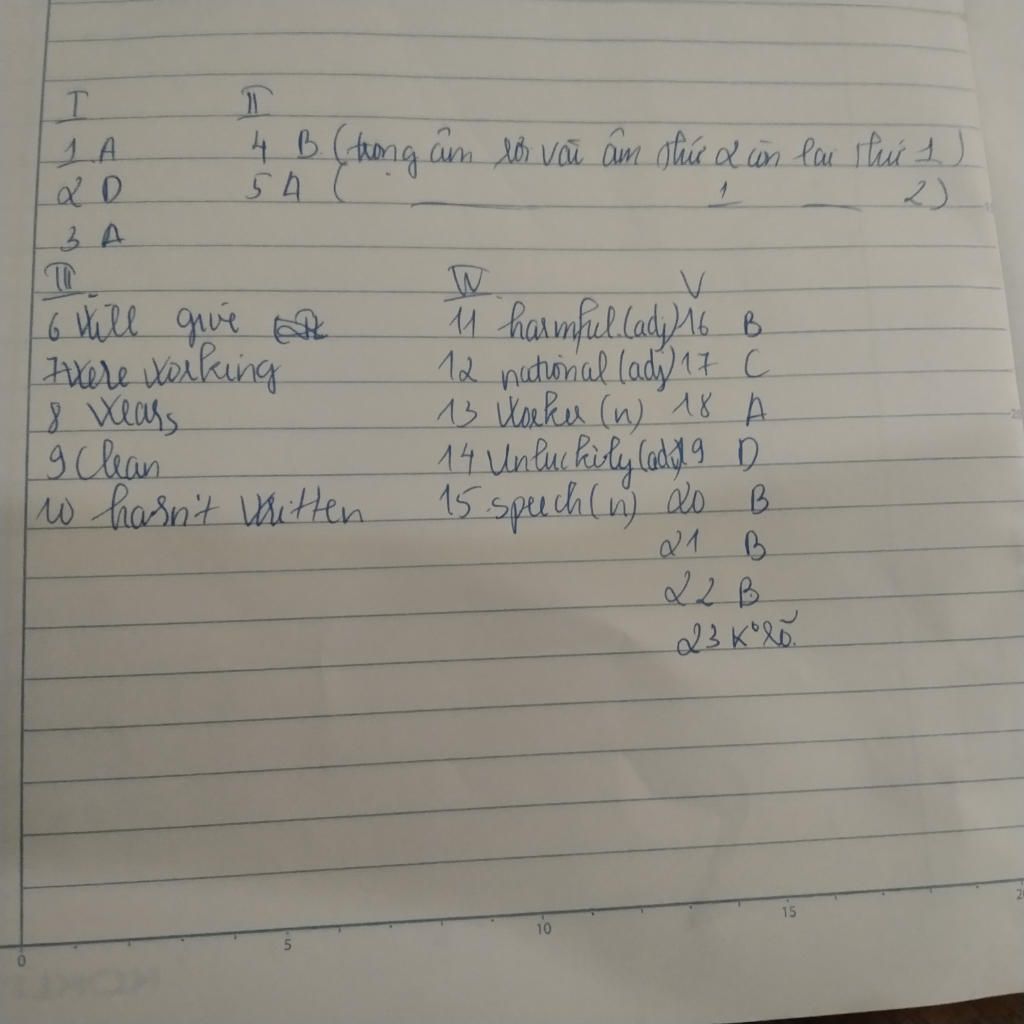 I II
1 A 4 B (trọng âm rơi vài âm thứ 2 còn lại thứ 1)
2 D 5 A ( 1 2)
3 A
III IV V
6 will give 11 harmful (adj) 16 B
7 were working 12 national (adj) 17 C
8 wears 13 worker (n) 18 A
9 Clean 14 Unluckily (adv) 19 D
10 hasn't written 15 speech (n) 20 B
21 B
22 B
23 K° rõ.
0 5 10 15